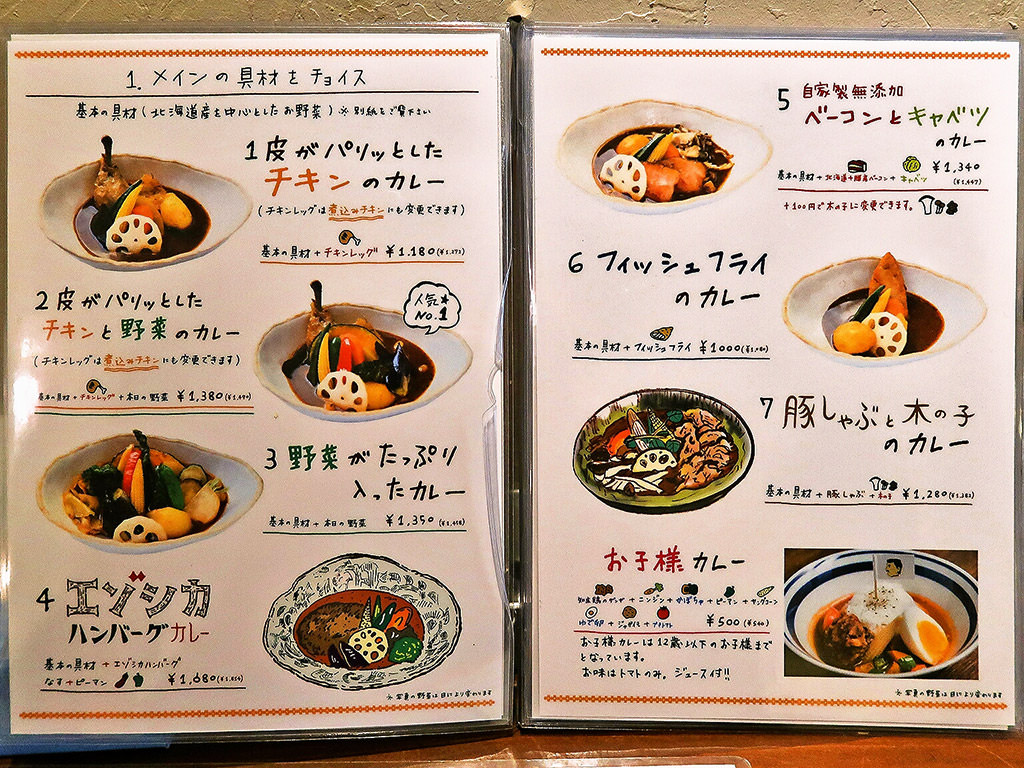 1. メインの具材をチョイス
基本の具材(北海道産を中心としたお野菜) ※別紙をご覧下さい
1 皮がパリッとした
チキンのカレー
(チキンレッグは煮込みチキンにも変更できます)
基本の具材+チキンレッグ ¥1.180(¥1.273)
2 皮がパリッとした
チキンと野菜のカレー
(チキンレッグは煮込みチキンにも変更できます)
基本の具材+チキンレッグ+本日の野菜 ¥1,380(¥1,490)
人気★
No.1
3 野菜がたっぷり
入ったカレー
基本の具材+本日の野菜 ¥1,350(¥1,458)
4 エゾシカ
ハンバーグカレー
基本の具材+エゾシカハンバーグ
なす+ピーマン ¥1,680
※写真の野菜は日により変わります
5 自家製無添加
ベーコンとキャベツ
のカレー
基本の具材+北海道十勝産ベーコン+キャベツ ¥1,340
(¥1,447)
+100円で木の子に変更できます。
6 フィッシュフライ
のカレー
基本の具材+フィッシュフライ ¥1000(¥1,080)
7 豚しゃぶと木の子
のカレー
基本の具材+豚しゃぶ+木の子 ¥1,280(¥1,382)
お子様カレー
+ニンジン+かぼちゃ+ピーマン+ヤングコーン
ゆで卵+ジャガイモ+プチトマト ¥500(¥540)
お子様カレーは12歳以下のお子様まで
となっています。
お味はトマトのみ。ジュース付!!
※写真の野菜は日により変わります